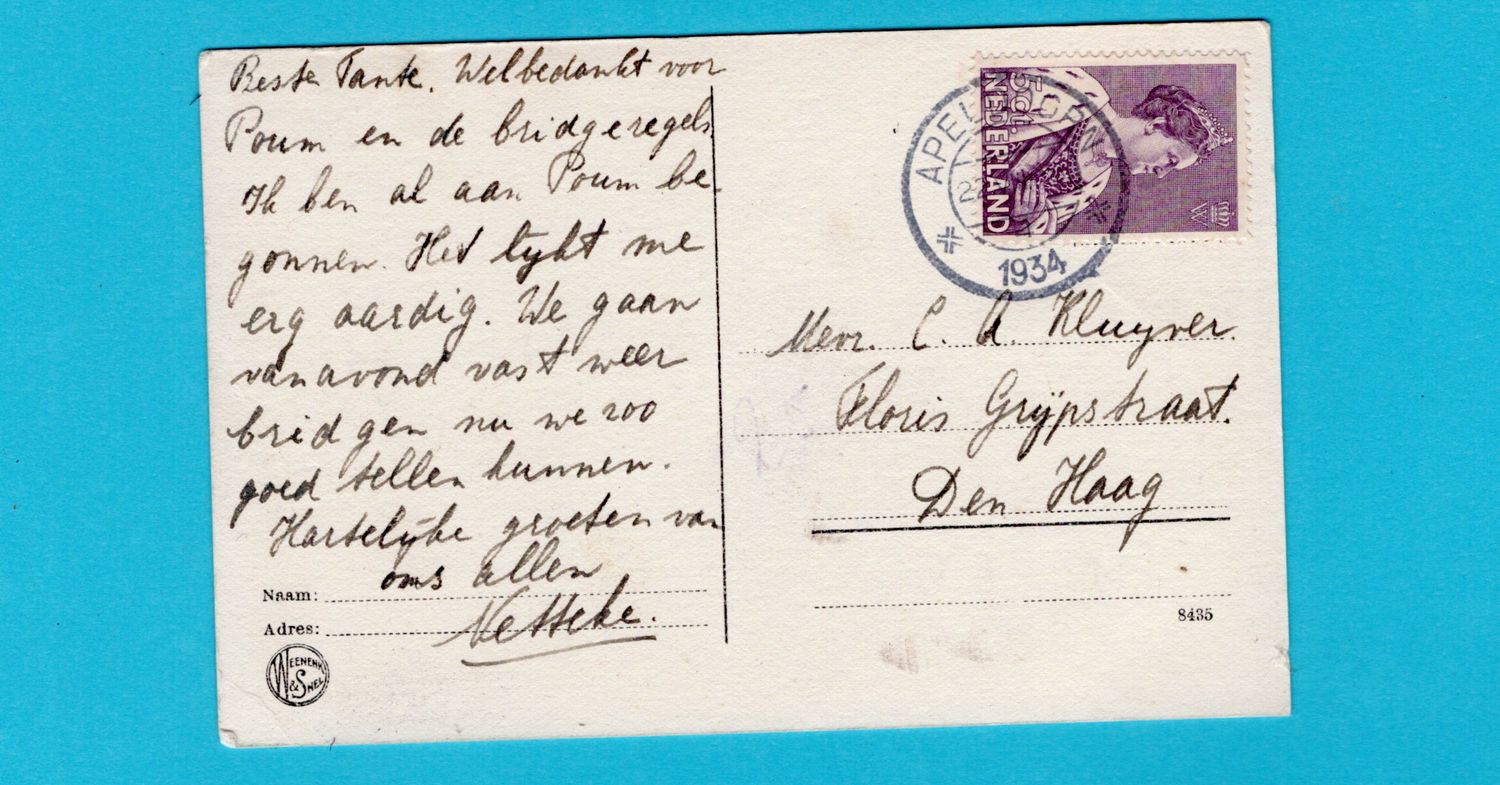 Beste Tante. Welbedankt voor
Poum en de bridgeregels
Ik ben al aan Poum be-
gonnen. Het lijkt me
erg aardig. We gaan
vanavond vast weer
bridgen nu we zoo
goed tellen kunnen.
Hartelijke groeten van
ons allen
Netteke.
Naam:
Adres:
WEENENK & SNEL
5ct.
NEDERLAND
APELDOORN
1934
Mevr. C. A. Kluyver.
Floris Grijpstraat.
Den Haag
8435